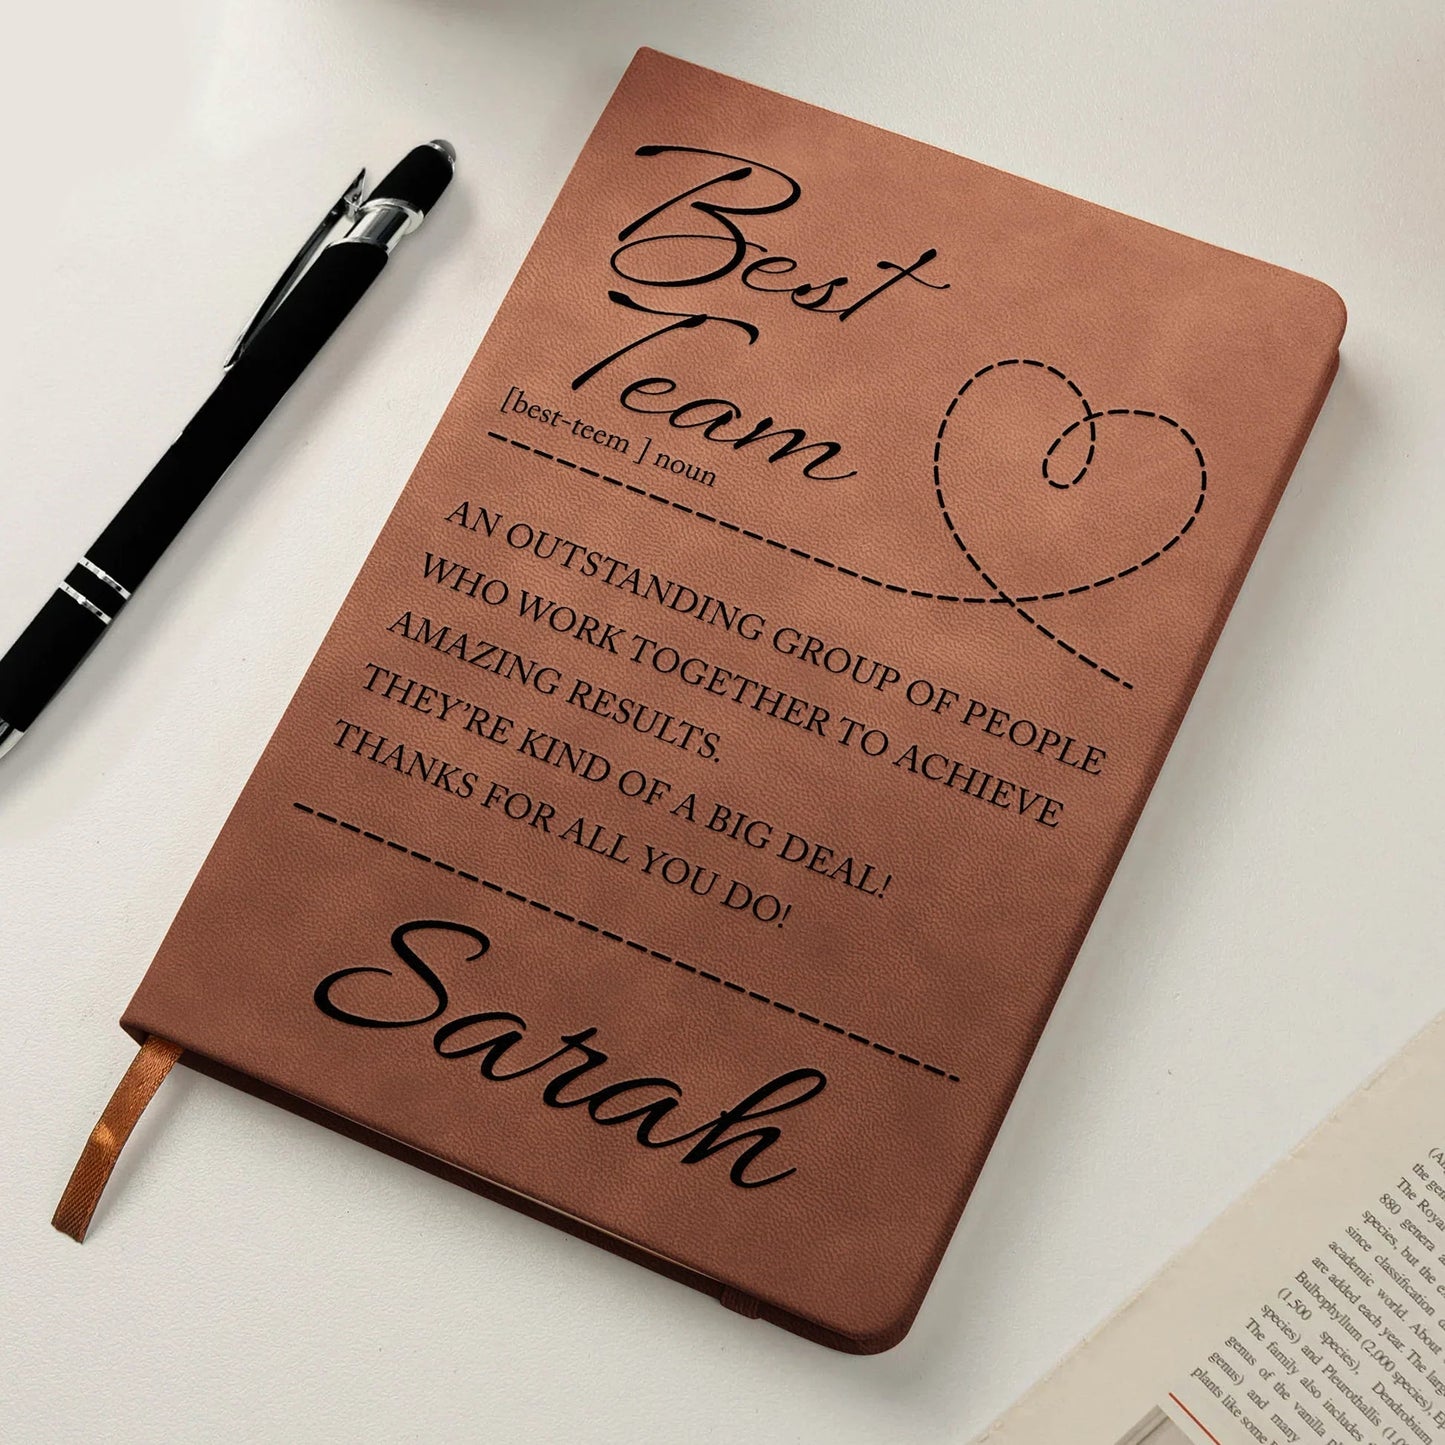 Best
Team
[best-teem ] noun
AN OUTSTANDING GROUP OF PEOPLE
WHO WORK TOGETHER TO ACHIEVE
AMAZING RESULTS.
THEY'RE KIND OF A BIG DEAL!
THANKS FOR ALL YOU DO!
Sarah
the
The Royal
880 genera
species, but the
since classification
academic world. About
are added each year. The
Bulbophyllum (2,000 species),
(1,500 species), Dendrobium
species) and Pleurothallis
The family also includes
genus of the vanilla
genus) and many
plants like some